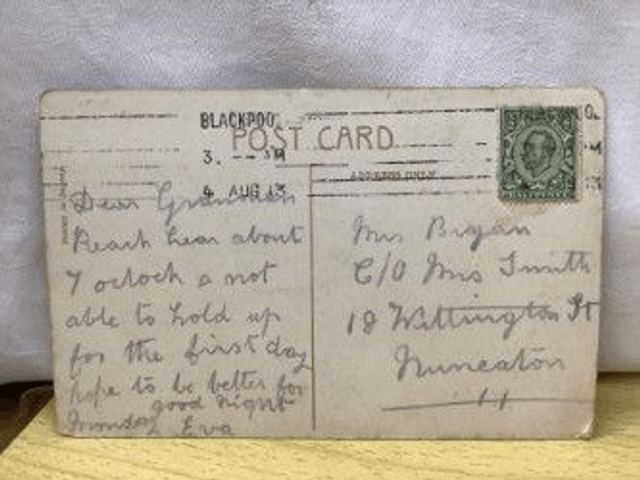 BLACKPOO
POST CARD
3. -- AM
4 AUG 13
ADDRESS ONLY
Dear
Reach hear about
7 oclock a not
able to hold up
for the first day
hope to be better for
Monday good night
Eva
Mrs Bryan
C/O Mrs Smith
18 Wittington St
Nuneaton